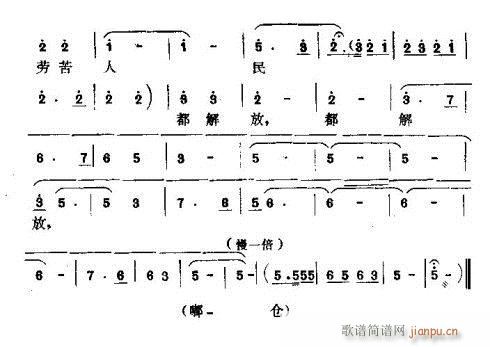 2 2 | 1 - | 1 - | 5 . 3 | 2 . (3 2 1 | 2 3 2 1 |
劳苦 人 民
2 . 2 | 2 2 ) | 3 3 | 2 - | 2 - | 3 . 7 |
都解 放, 都 解
6 . 7 | 6 5 | 3 - | 5 - | 5 - | 5 - |
3 5 . | 5 3 | 7 . 6 | 5 6 . | 6 - | 6 - |
放,
(慢一倍)
6 - | 7 . 6 | 6 3 | 5 - | 5 - | (5 . 555 | 6 5 6 3 | 5 - | 5 - )‖
(嘟- 仓)
歌谱简谱网
jianpu.cn